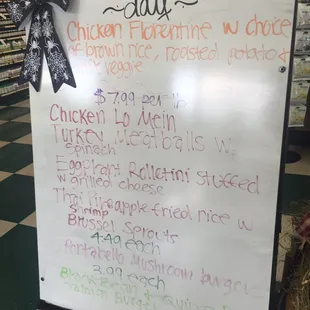 ~day~
Chicken Florentine w choice
of brown rice, roasted potato &
veggie
$7.99 per lb
Chicken Lo Mein
Turkey Meatballs w.
spinach
Eggplant Rolletini stuffed
w grilled cheese
Thai Pineapple fried rice w
Shrimp
Brussel Sprouts
4.49 each
Portabello Mushroom burger
3.99 each
Burger